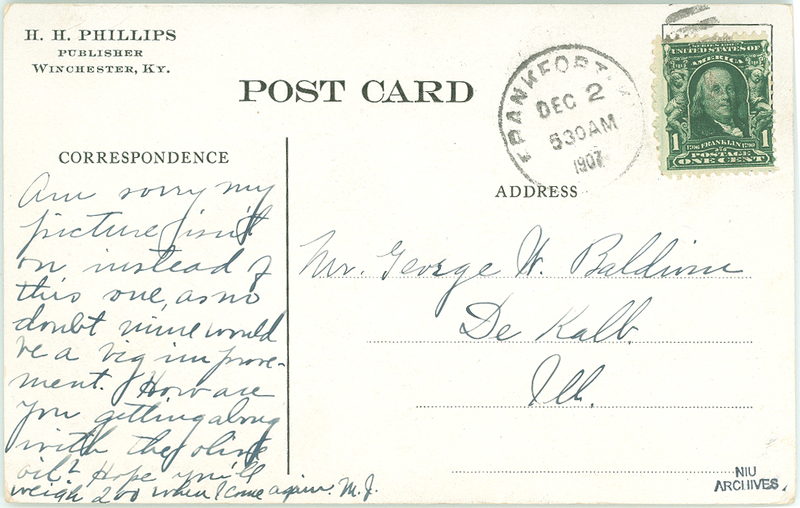 H. H. PHILLIPS
PUBLISHER
WINCHESTER, KY.
POST CARD
FRANKFORT
DEC 2
530AM
1907
SERIES 1902
UNITED STATES OF
AMERICA
1706 FRANKLIN 1790
1 1
POSTAGE
ONE CENT
CORRESPONDENCE
Am sorry my
picture isn't
on instead of
this one, as no
doubt mine would
be a big improve-
ment. How are
you getting along
with the olive
oil? Hope you'll
weigh 200 when I come again. M.J.
ADDRESS
Mr. George W. Baldwin
De Kalb.
Ill.
NIU
ARCHIVES.